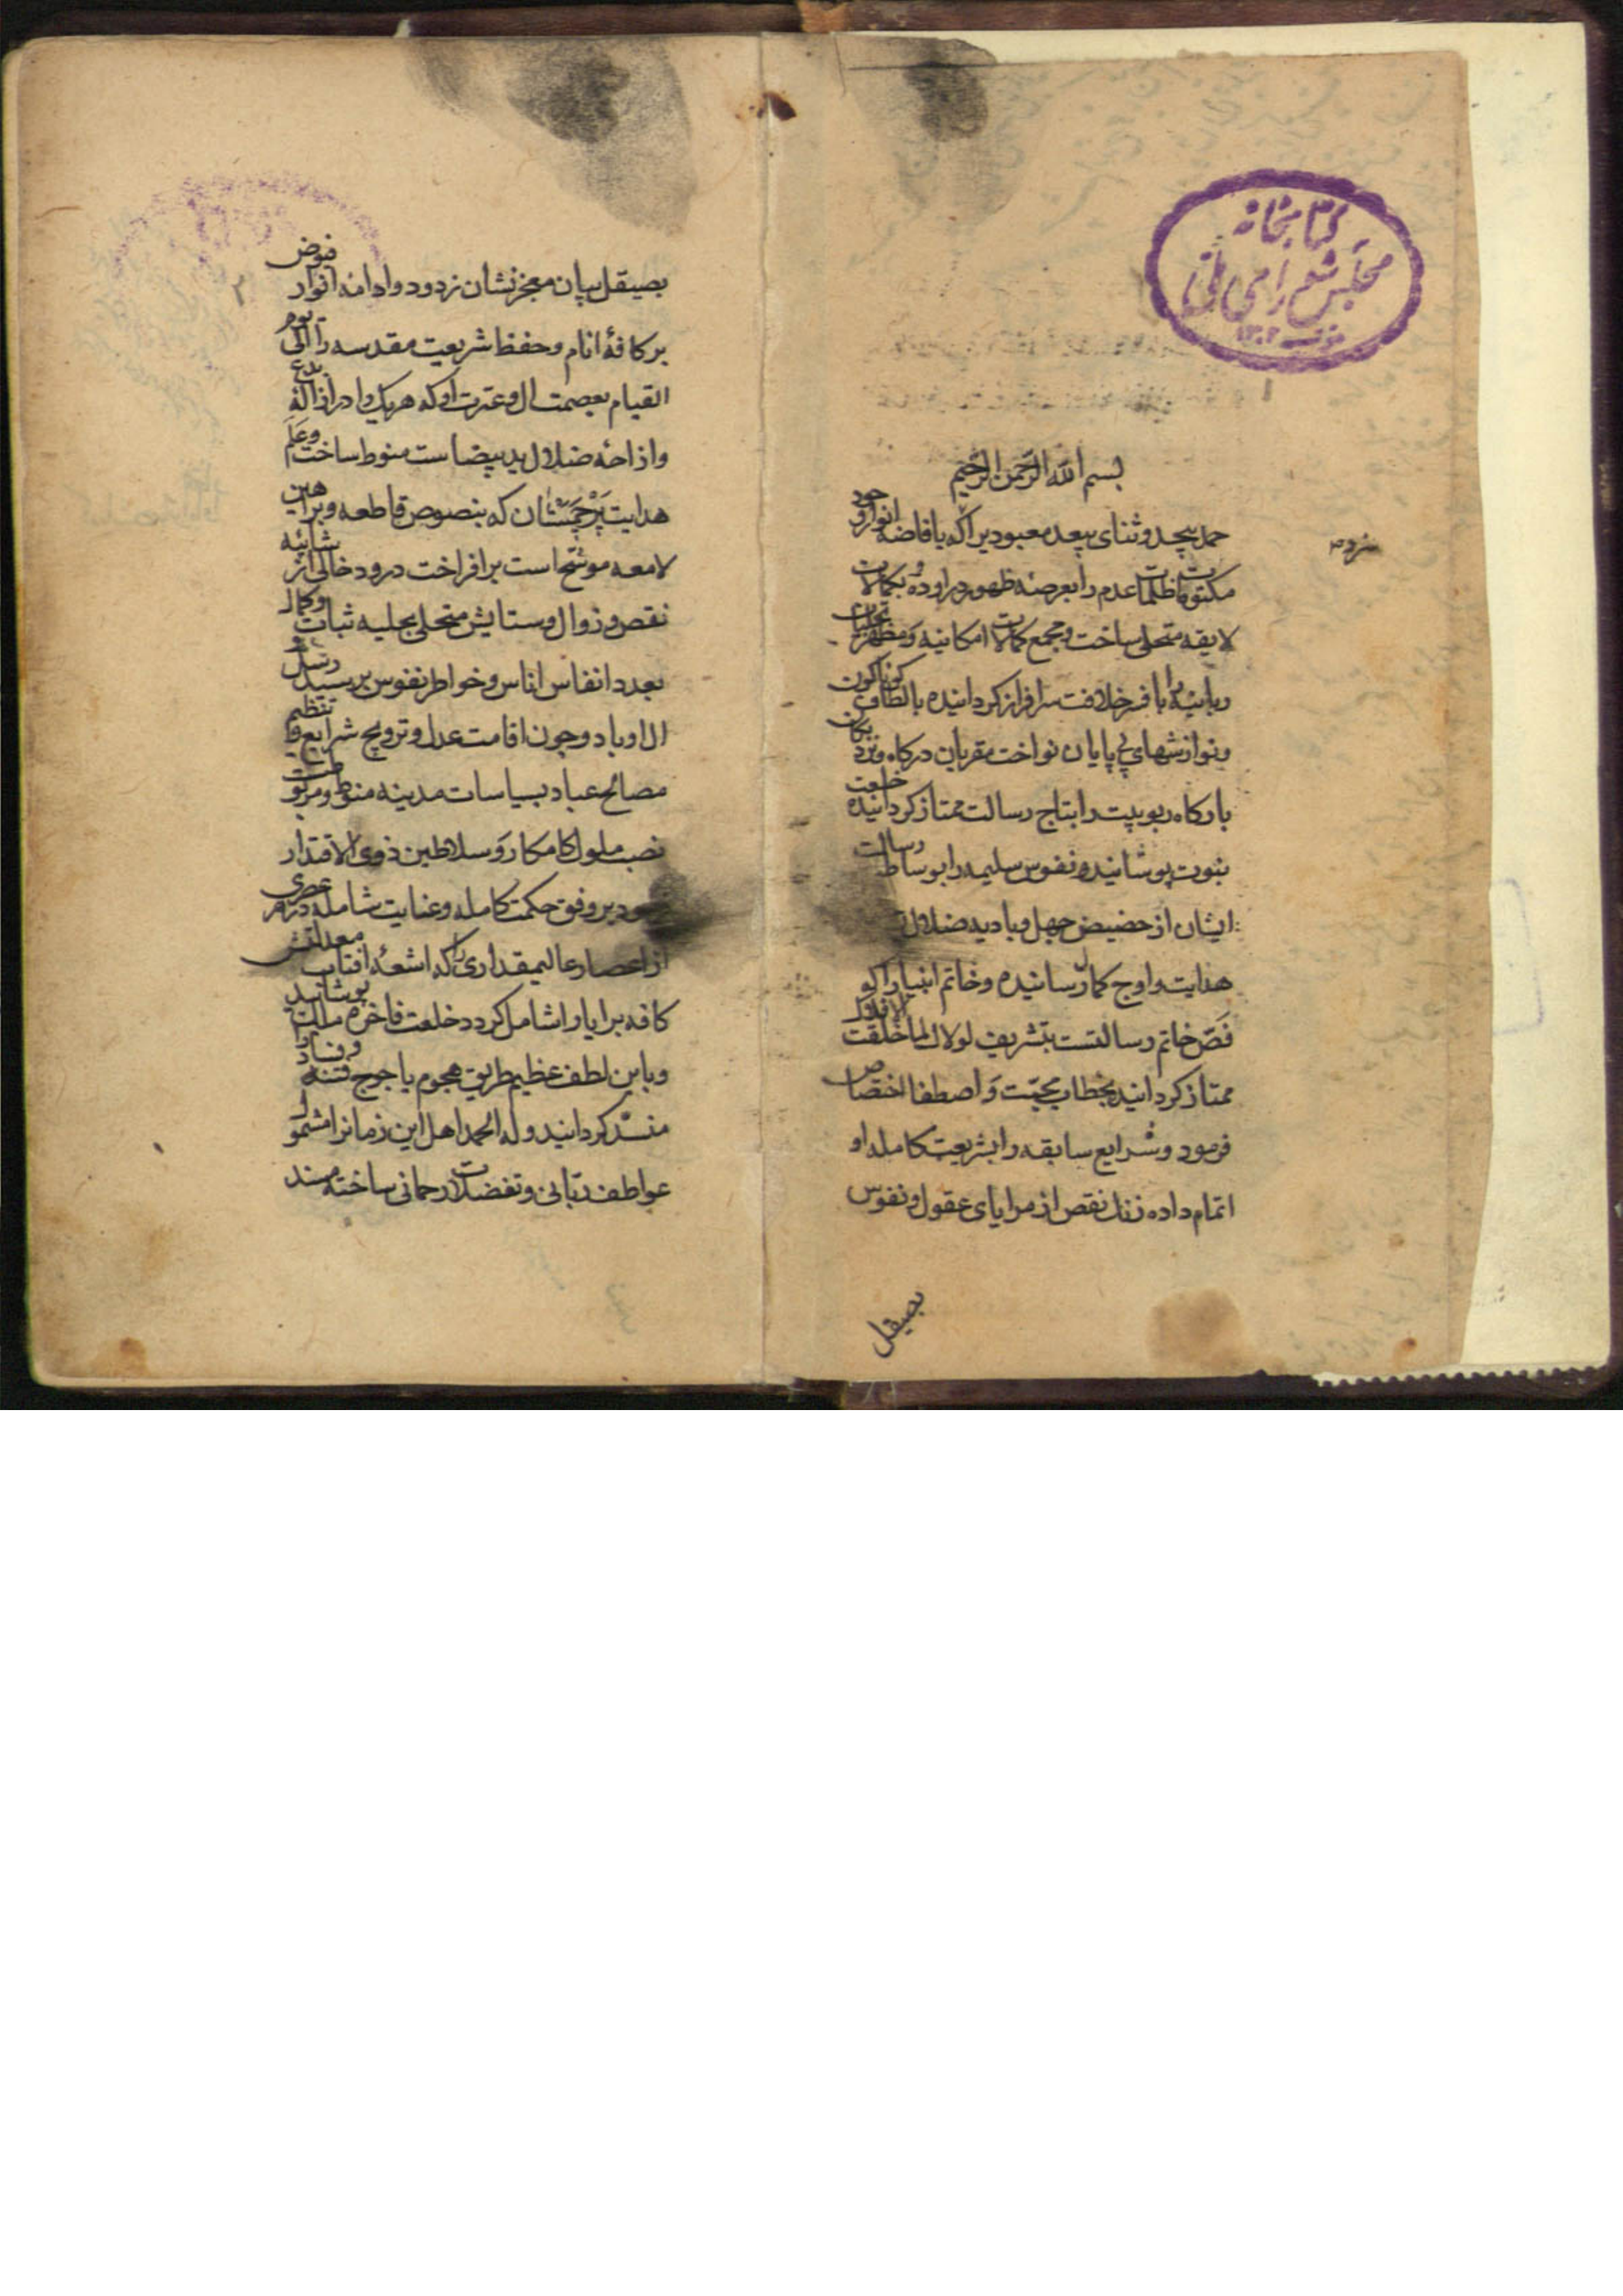 کتابخانه
مجلس شورای ملی
بسم الله الرحمن الرحیم
حمد بیحد و ثنای بیعد معبودیرا که بافاضه انوار وجود
مکنونات ظلمات عدم را بعرصه ظهور در اورده و بکمالات
لایقه متحلی ساخت و مجمع کمالات امکانیه و مظهر تجلیات
ربانیه را بافسر خلافت سرافراز کردانیده بالطاف کوناکون
و نوازشهای بی پایان نواخت مقربان درکاه و نزدیکان
بارکاه ربوبیت را بتاج رسالت ممتاز کردانیده خلعت
نبوت پوشانید و نفوس سلیمه را بوساطت رسالت
ایشان از حضیض جهل و بادیه ضلالت
هدایت و اوج کمال رسانیده و خاتم انبیا را که
فص خاتم رسالتست بتشریف لولاک لما خلقت الافلاک
ممتاز کردانید بخطاب محبت و اصطفا اختصاص
فرمود و شرایع سابقه را بشریعت کامله او
اتمام داده زنک نقص از مرایای عقول و نفوس
بصیقل
بصیقل بیان معجز نشان زدود و ادامه انوار فیوض
بر کافهٔ انام و حفظ شریعت مقدسه را الی یوم
القیام بعصمت ال و عترت او که هر یک را در ازالهٔ بدع
و ازاحه ضلال ید بیضاست منوط ساخت و علم
هدایت پرچمشان که بنصوص قاطعه و براهین
لامعه موشح است بر افراخت درود خالی از شائبه
نقص و زوال و ستایش متحلی بحلیه ثبات و کمال
بعدد انفاس اناس و خواطر نفوس بر سید رسل و
ال او باد و چون اقامت عدل و ترویج شرایع و تنظیم
مصالح عباد بسیاسات مدینه منوط و مربوطست
نصب ملوک کامکار و سلاطین ذوی الاقتدار
بر وفق حکمت کامله و عنایت شامله در هر عصری
از اعصار عالیمقداری را که اشعهٔ افتاب معدلتش
کافه برایا را شامل کردد خلعت فاخره ملک پوشانید
و باین لطف عظیم طریق هجوم یاجوج فتنه و فساد را
منسد کردانید و له الحمد اهل این زمانرا مشمول
عواطف ربانی و تفضلات رحمانی ساخته مسند